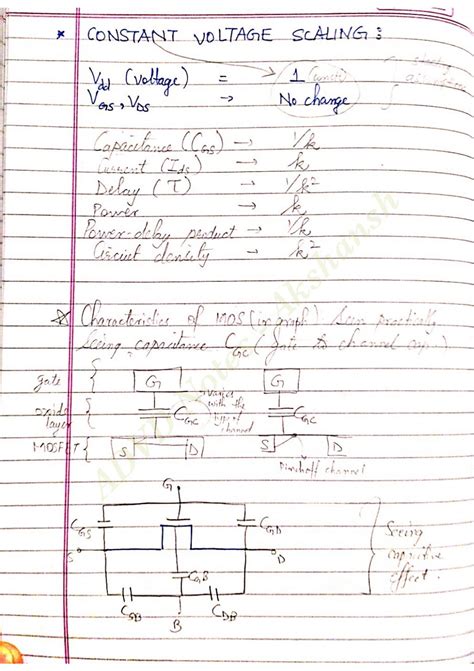 * CONSTANT VOLTAGE SCALING :
Vdd (voltage) = 1 (unit)
VGS, VDS → No change
Capacitance (CGS) → 1/k
Current (Ids) → k
Delay (T) → 1/k²
Power → k
Power-delay product → 1/k
Circuit density → k²
* Characteristics of MOS (in graph) : Seen practically
Seeing capacitance CGC (gate to channel cap.)
gate { G G
oxide layer { CGC varies with the type of channel CGC
MOSFET { S D S D
Pinchoff channel
G
CGS CGD
S D
CGB
CSB CDB
B
Seeing capacitive effect.
ADVD Notes Akshansh